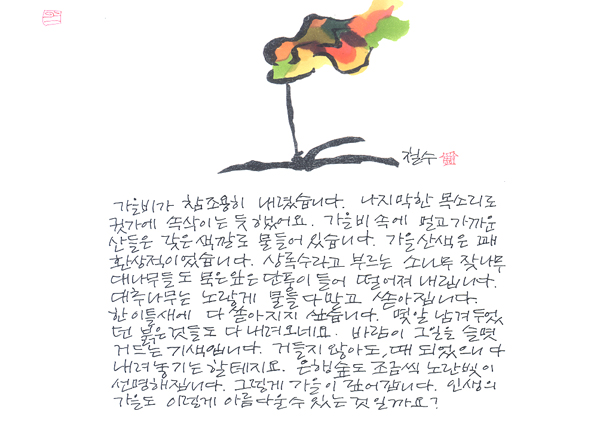 철수
가을비가 참 조용히 내렸습니다. 나지막한 목소리로
귓가에 속삭이는 듯 했었어요. 가을비 속에 멀고 가까운
산들은 갖은 색깔로 물들어 있습니다. 가을산색은 꽤
환상적이었습니다. 상록수라고 부르는 소나무 잣나무
대나무들도 묵은 잎은 단풍이 들어 떨어져 내립니다.
대추나무는 노랗게 물들다 말고 쏟아집니다.
한 이틀새에 다 쏟아지지 싶습니다. 몇알 남겨두었
던 붉은것들도 다 내려오네요. 바람이 그 일을 슬몃
거드는 기색입니다. 거들지 않아도, 때 되었으니 다
내려놓기는 할 테지요. 은행숲도 조금씩 노란빛이
선명해집니다. 그렇게 가을이 깊어갑니다. 인생의
가을도 이렇게 아름다울 수 있는 것일까요?